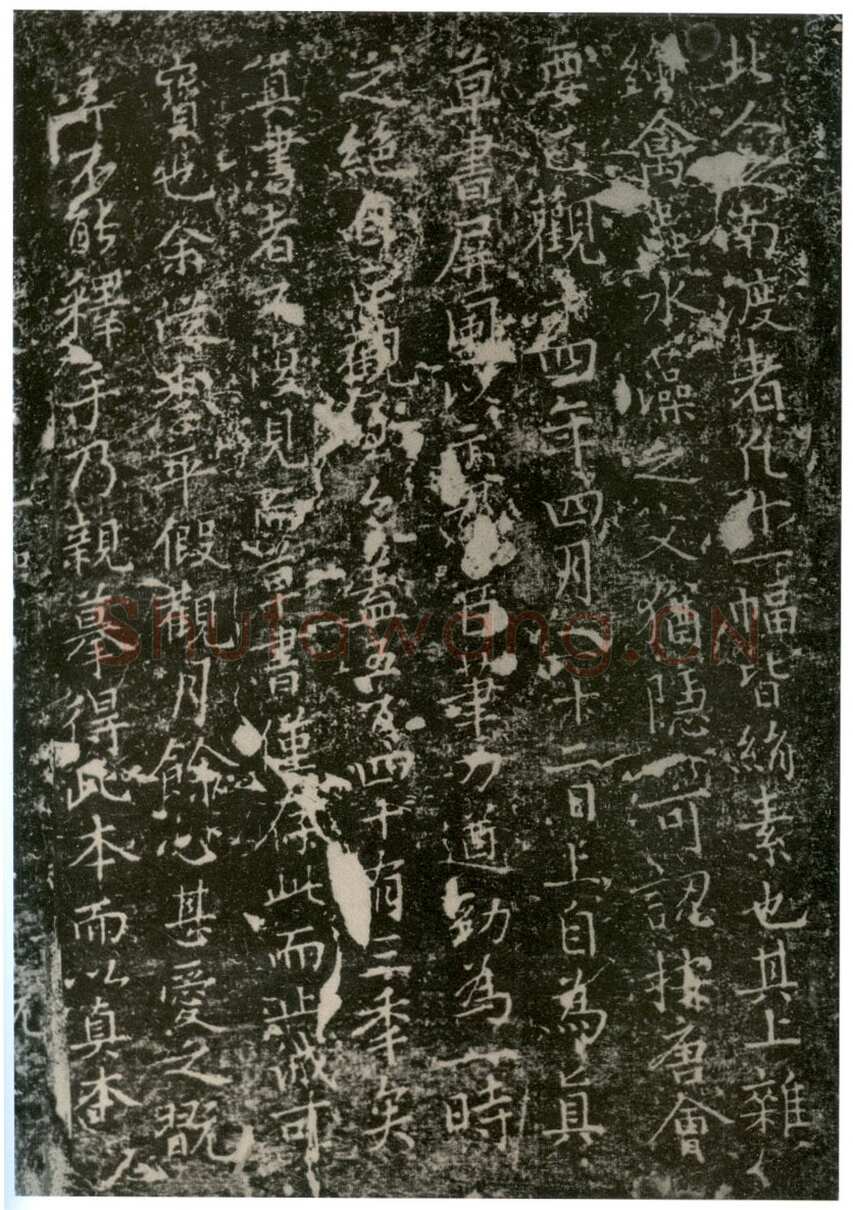 北入南渡者凡十一幅皆絹素也其上雜
繪禽蟲水藻之文猶隱可認按唐會
要貞觀十四年四月二十二日上自為真
草書屏風以示群臣筆力遒勁為一時
之絕自貞觀 今蓋五百四十有三年矣
真書者不復見而草書僅存此而此誠可
寶也余從 平假觀月餘心甚愛之既
弄不能釋手乃親摹得此本而以真本
Shufawang.CN